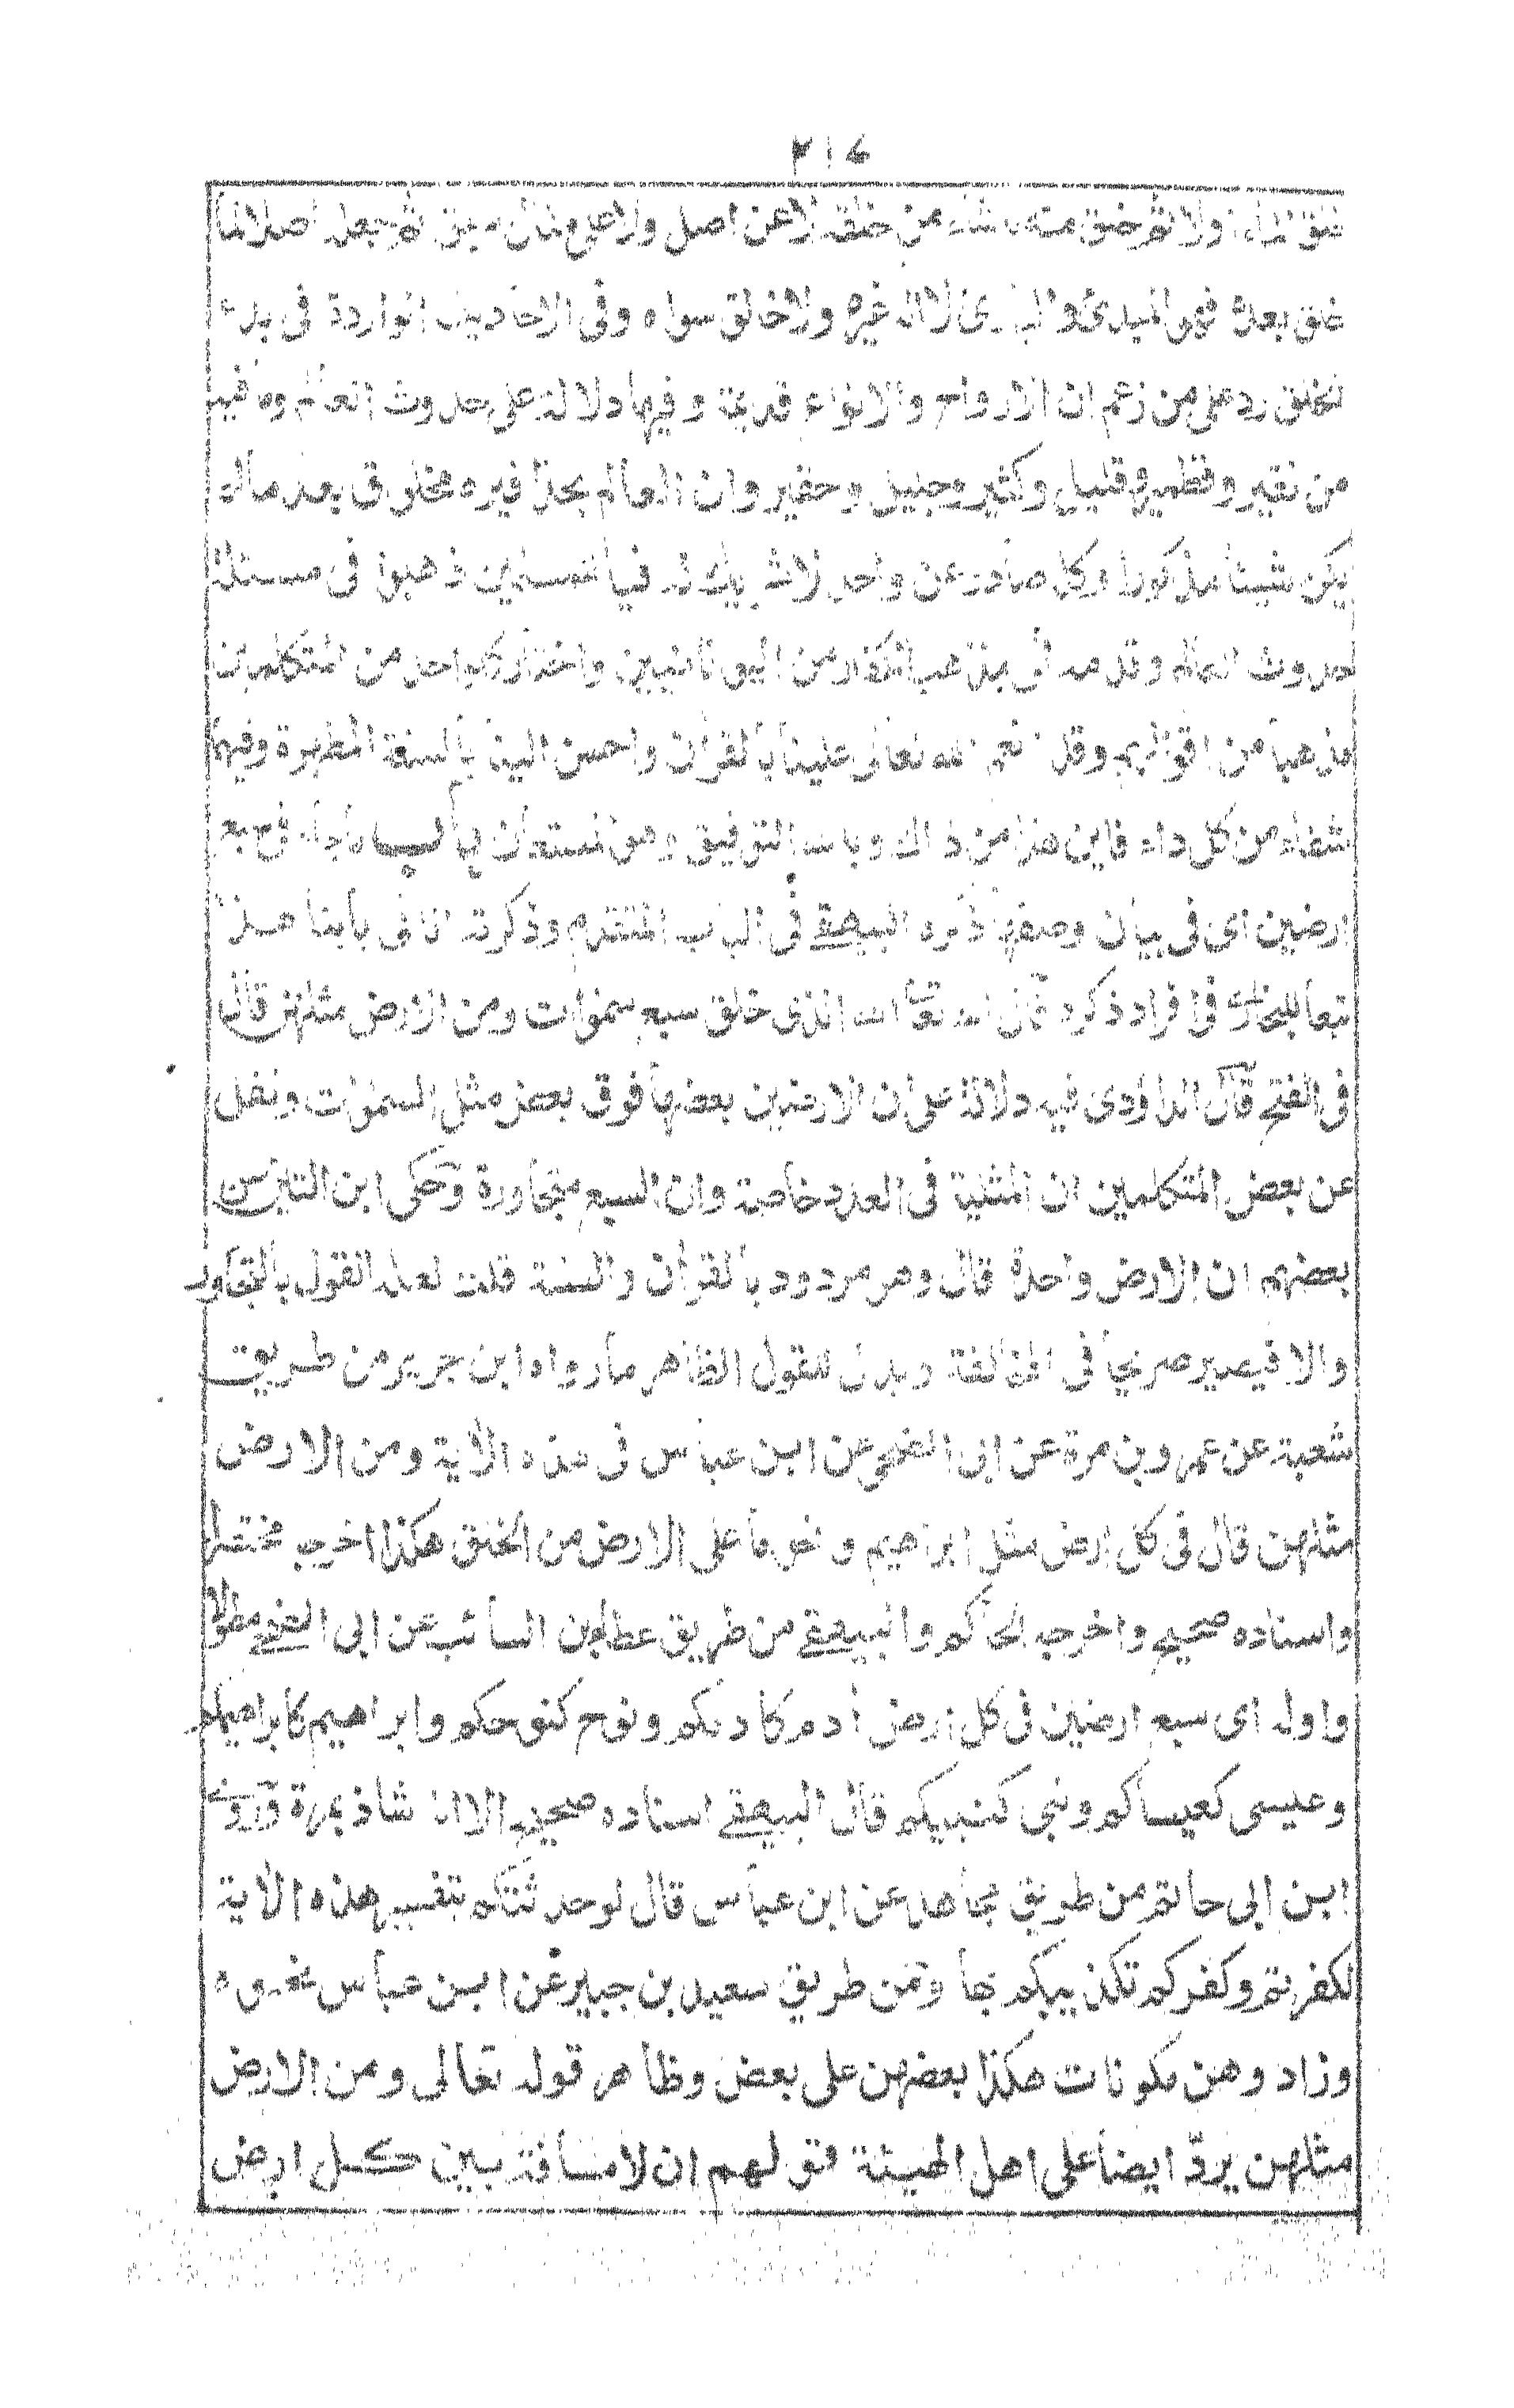 ٢١٤
خلق الماء اولا ثم خلق منه ما شاء من خلقه لا عن اصل ولا على مثال سبق ثم جعله اصلا لما
خلق بعده فهو المبدئ والبارئ لا اله غيره ولا خالق سواه وفى الاحاديث الواردة فى بدء
الخلق رد على من زعم ان الارواح والانواء قديمة وفيها دلالة على حدوث العالم وما فيه
من نقير وقطمير وقليل وكثير وجليل وحقير وان العالم بحذافيره مخلوق بعد ما لم
يكن شيئا مذكورا وكل صادر عن واحد لا شريك له فيا لمسلمين ذهبوا فى مسئلة
حدوث العالم وقدمه الى مذهب الكفار من اليونانيين واختار كل واحد من المتكلمين
مذهبا من اقوالهم وقد انعم الله تعالى علينا بالقرآن واحسن الينا بالسنة المطهرة وفيهما
شفاء من كل داء فاين هذا من ذاك وبالله التوفيق وهو المستعان باب ما جاء فى سبع
ارضين اى فى بيان وصفها ذكره البيهقى فى الباب المتقدم وذكرته انا فى بابنا هذا
تبعا للبخارى فى افراد ذكره قال الله تعالى الله الذى خلق سبع سموات ومن الارض مثلهن قال
فى الفتح قال الداؤدى فيه دلالة على ان الارضين بعضها فوق بعض مثل السموات ونقل
عن بعض المتكلمين ان المثلية فى العدد خاصة وان السبع متجاورة وحكى ابن التين عن
بعضهم ان الارض واحدة قال وهو مردود بالقرآن والسنة قلت لعله القول بالتجاور
والا فيصير صريحا فى المخالفة ويدل للقول الظاهر ما رواه ابن جرير من طريق
شعبة عن عمرو بن مرة عن ابى الضحى عن ابن عباس فى هذه الآية ومن الارض
مثلهن قال فى كل ارض مثل ابراهيم ونحو ما على الارض من الخلق هكذا اخرجه مختصرا
واسناده صحيح واخرجه الحاكم والبيهقى من طريق عطاء بن السائب عن ابى الضحى مطولا
واوله اى سبع ارضين فى كل ارض آدم كآدمكم ونوح كنوحكم وابراهيم كابراهيمكم
وعيسى كعيساكم ونبى كنبيكم قال البيهقى اسناده صحيح الا انه شاذ بمرة وروى
ابن ابى حاتم من طريق مجاهد عن ابن عباس قال لو حدثتكم بتفسير هذه الآية
لكفرتم وكفركم تكذيبكم بها ومن طريق سعيد بن جبير عن ابن عباس نحوه
وزاد وهن مكونات هكذا بعضهن على بعض وظاهر قوله تعالى ومن الارض
مثلهن يردّ ايضا على اهل الهيئة قولهم ان لا مسافة بين كل ارض